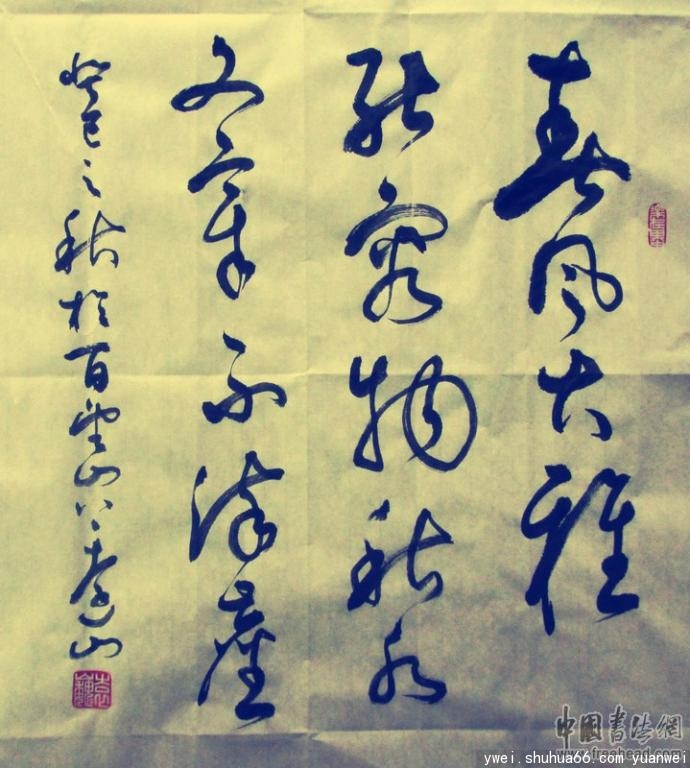 春风大雅
能容物秋水
文章不染塵
癸巳之秋於百望山下
中國書法網
ywei.shuhua66.com yuanwei